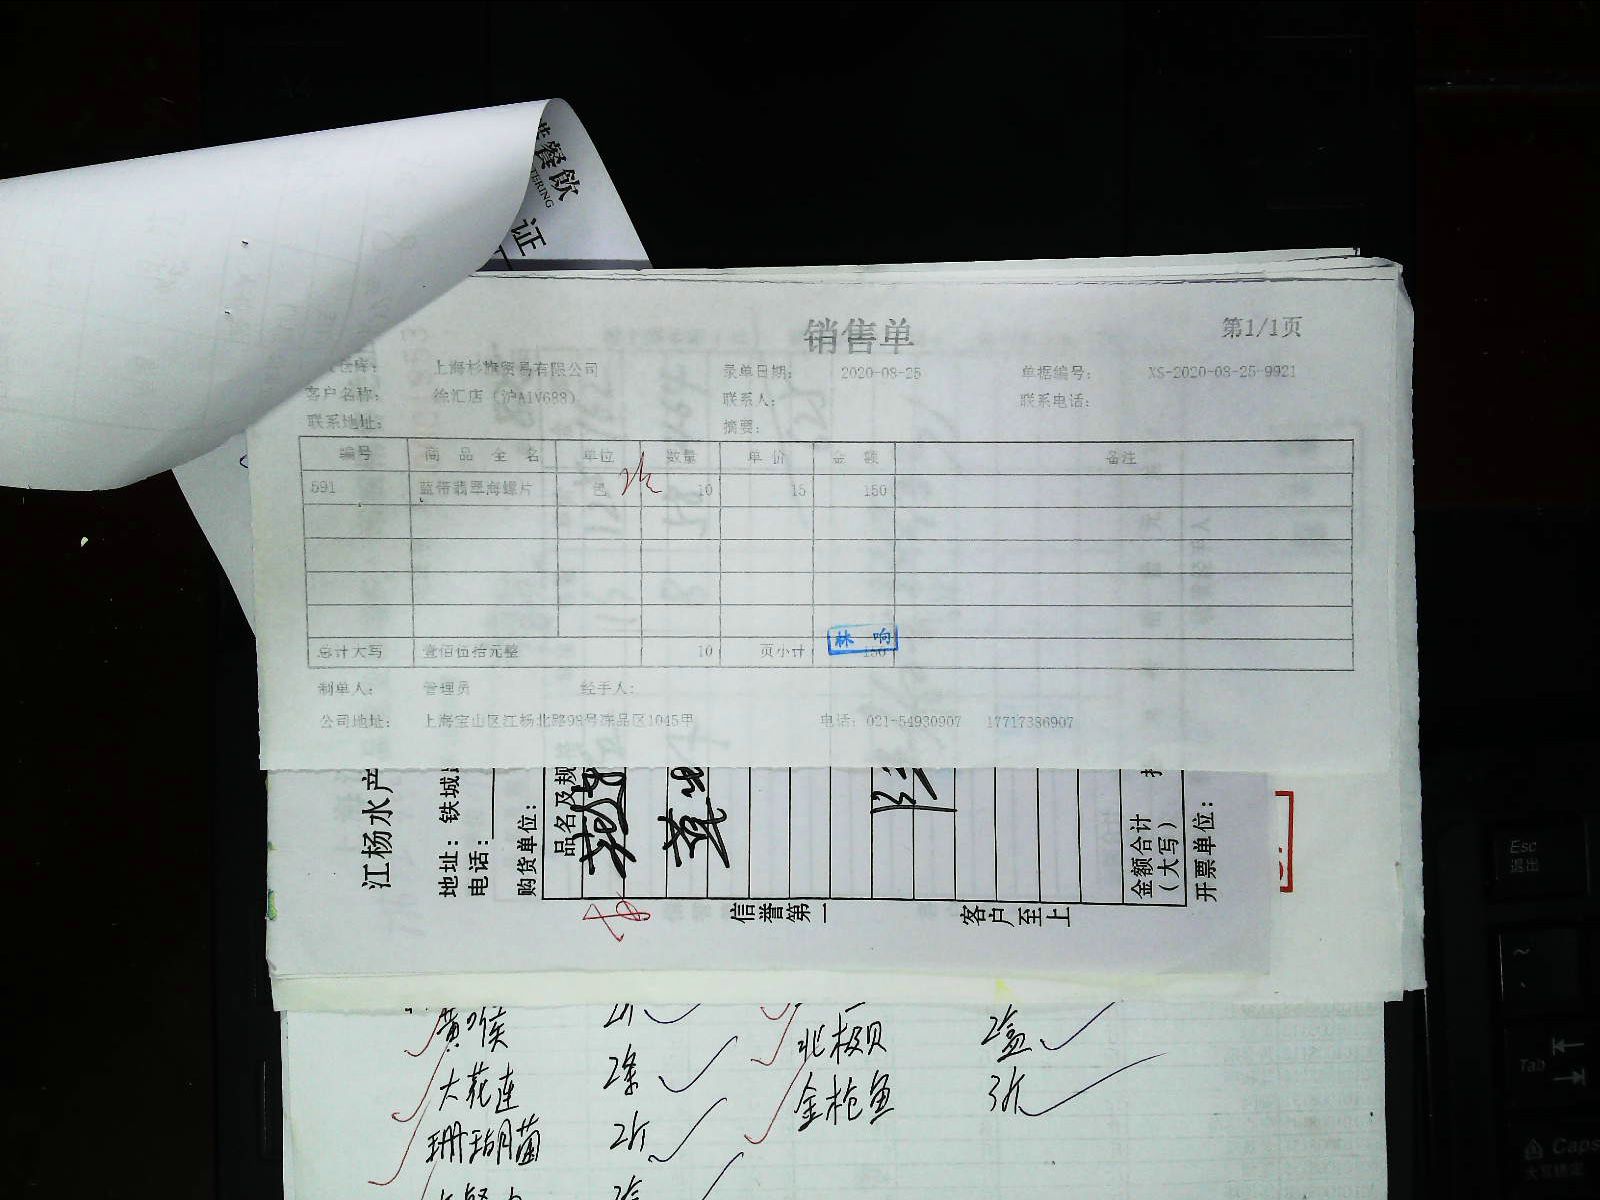 餐飲
TERING
证
销售单
第1/1页
库: 上海杉旗贸易有限公司 录单日期: 2020-08-25 单据编号: XS-2020-08-25-9921
客户名称: 徐汇店(沪A1V688) 联系人: 联系电话:
联系地址: 摘要:
编号 商品全名 单位 数量 单价 金额 备注
591 蓝带翡翠海螺片 包 10 15 150
总计大写 壹佰伍拾元整 10 页小计 150
林响
制单人: 管理员 经手人:
公司地址: 上海宝山区江杨北路98号冻品区1045甲 电话: 021-54930907 17717386907
江杨水产
地址: 铁城
电话:
购货单位:
品名及规
金额合计
(大写)
开票单位:
信誉第一 客户至上
黄喉 2斤 北极贝 2盒
大花连 2条 金枪鱼 3斤
珊瑚菌 2斤
Esc
退出
Tab
Caps
大写锁定